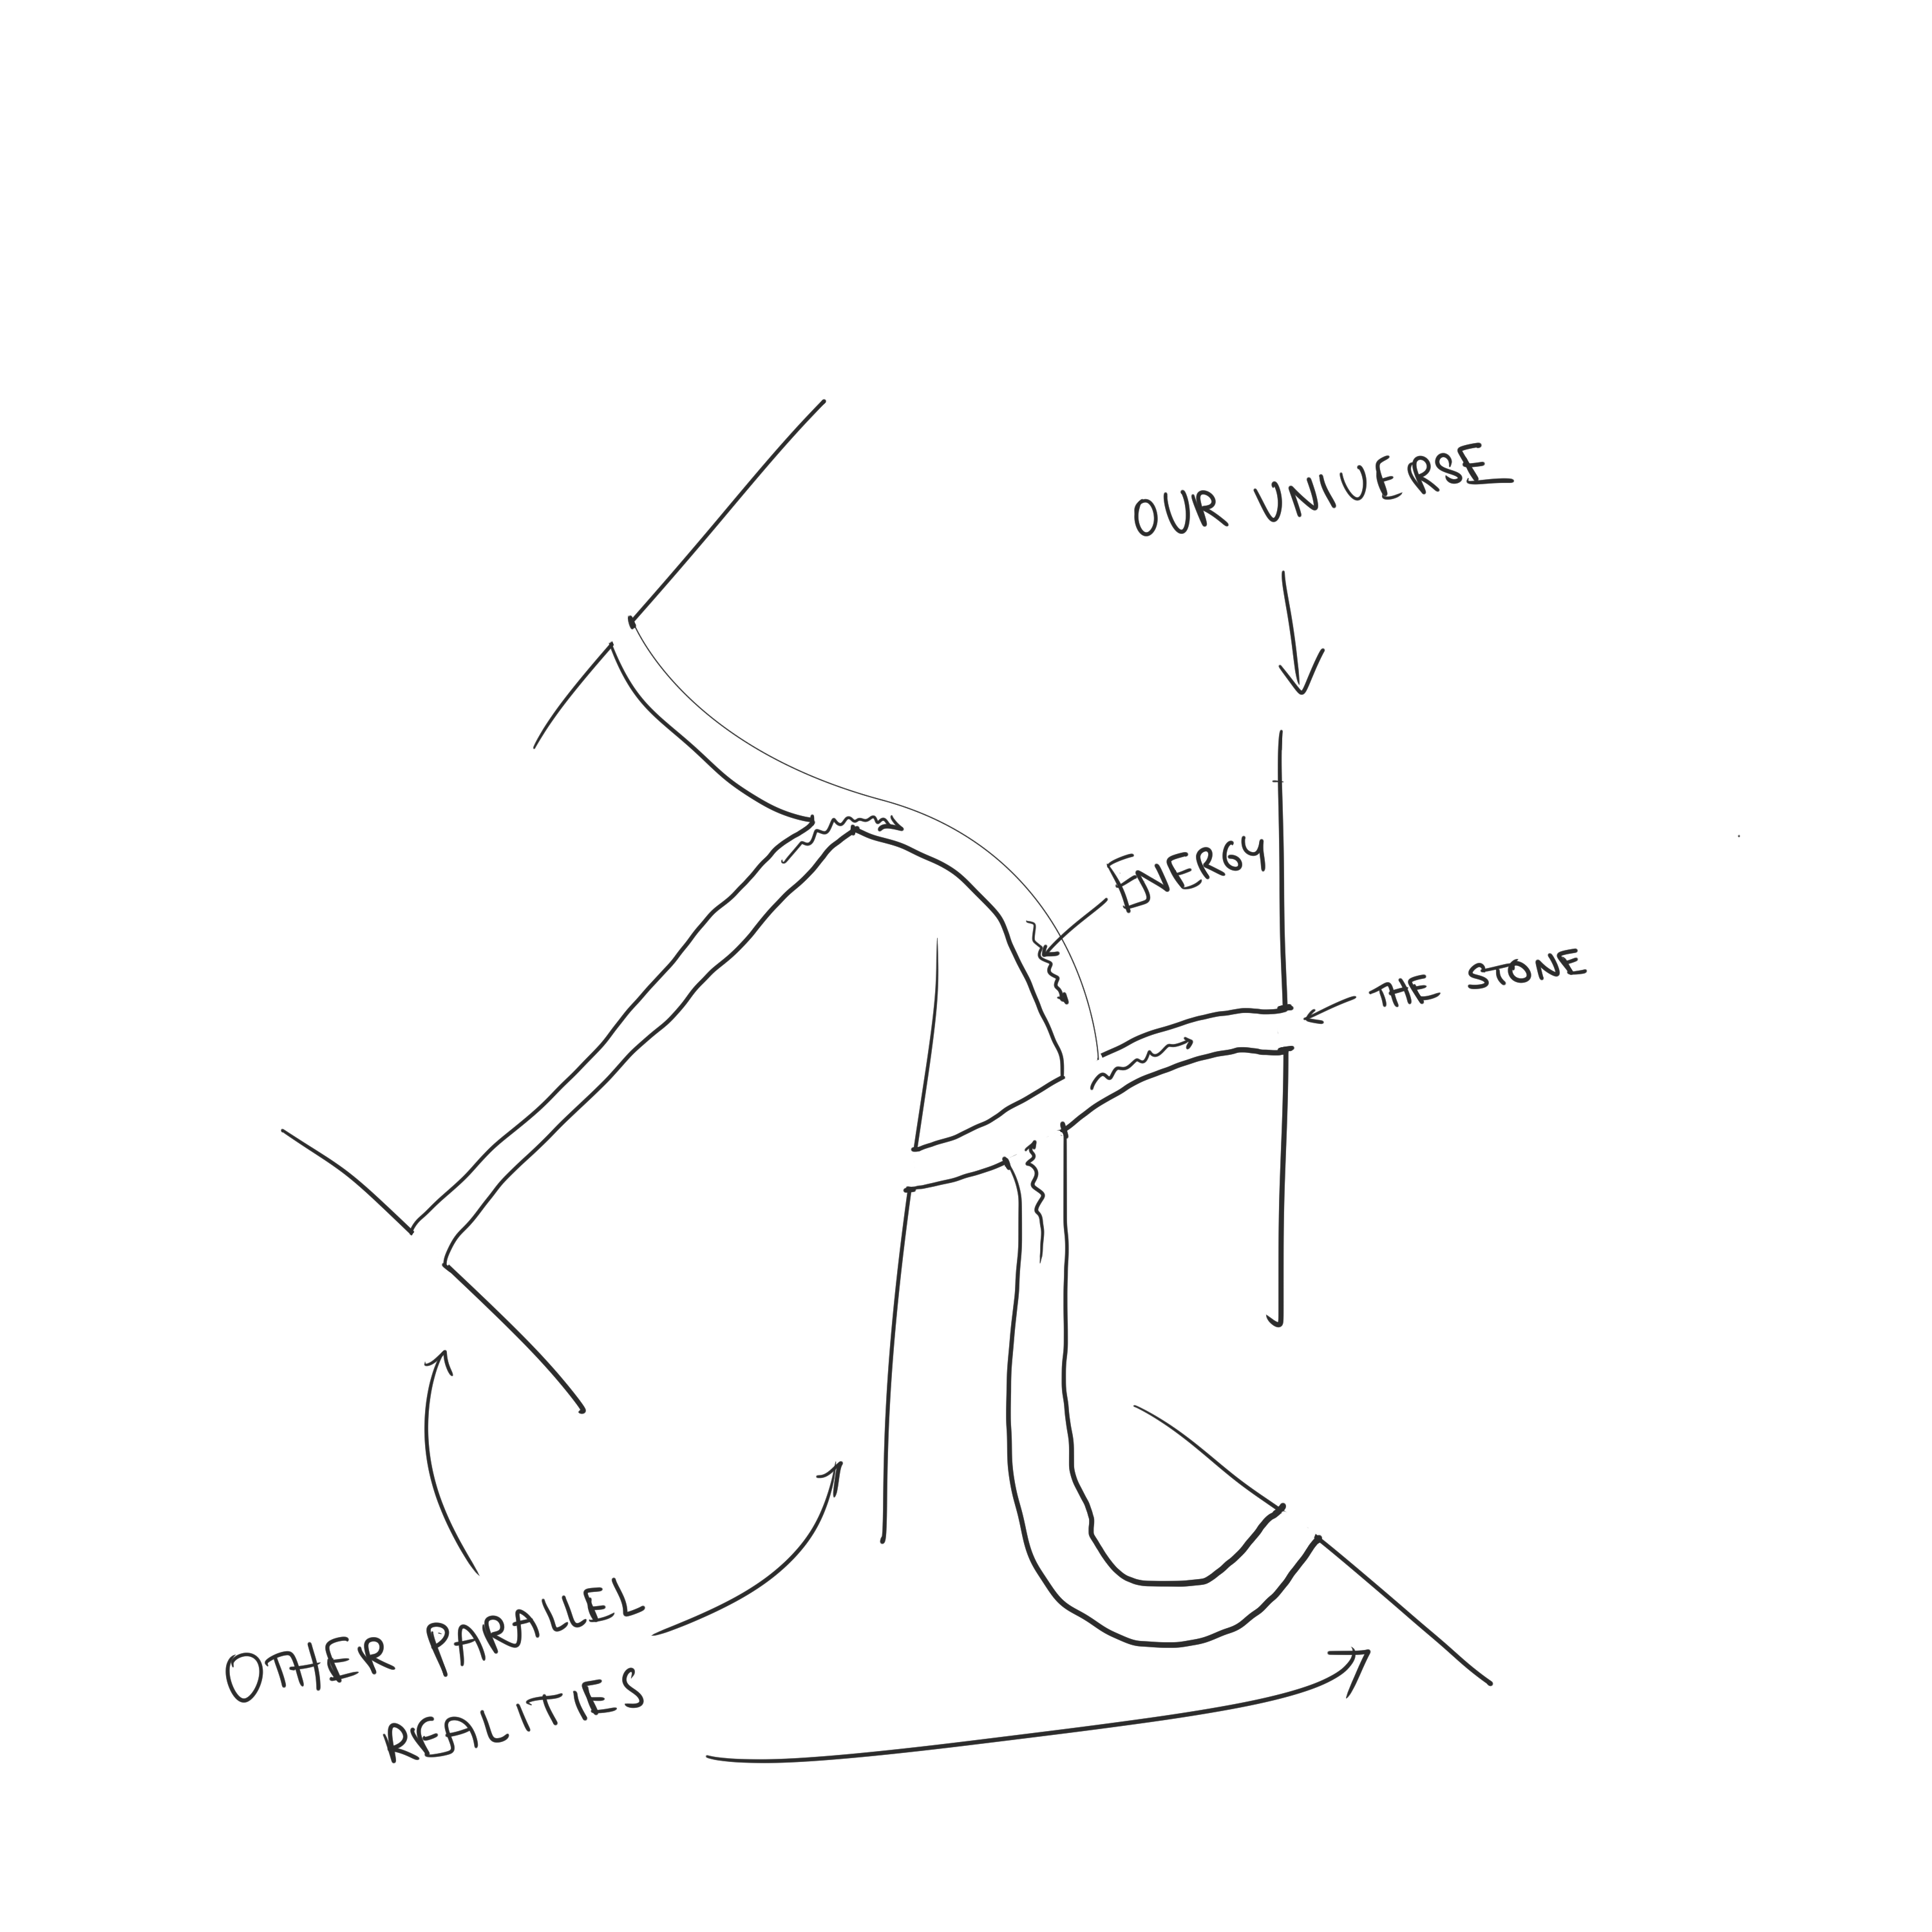 OUR UNIVERSE
ENERGY
THE STONE
OTHER PARALLEL
REALITIES